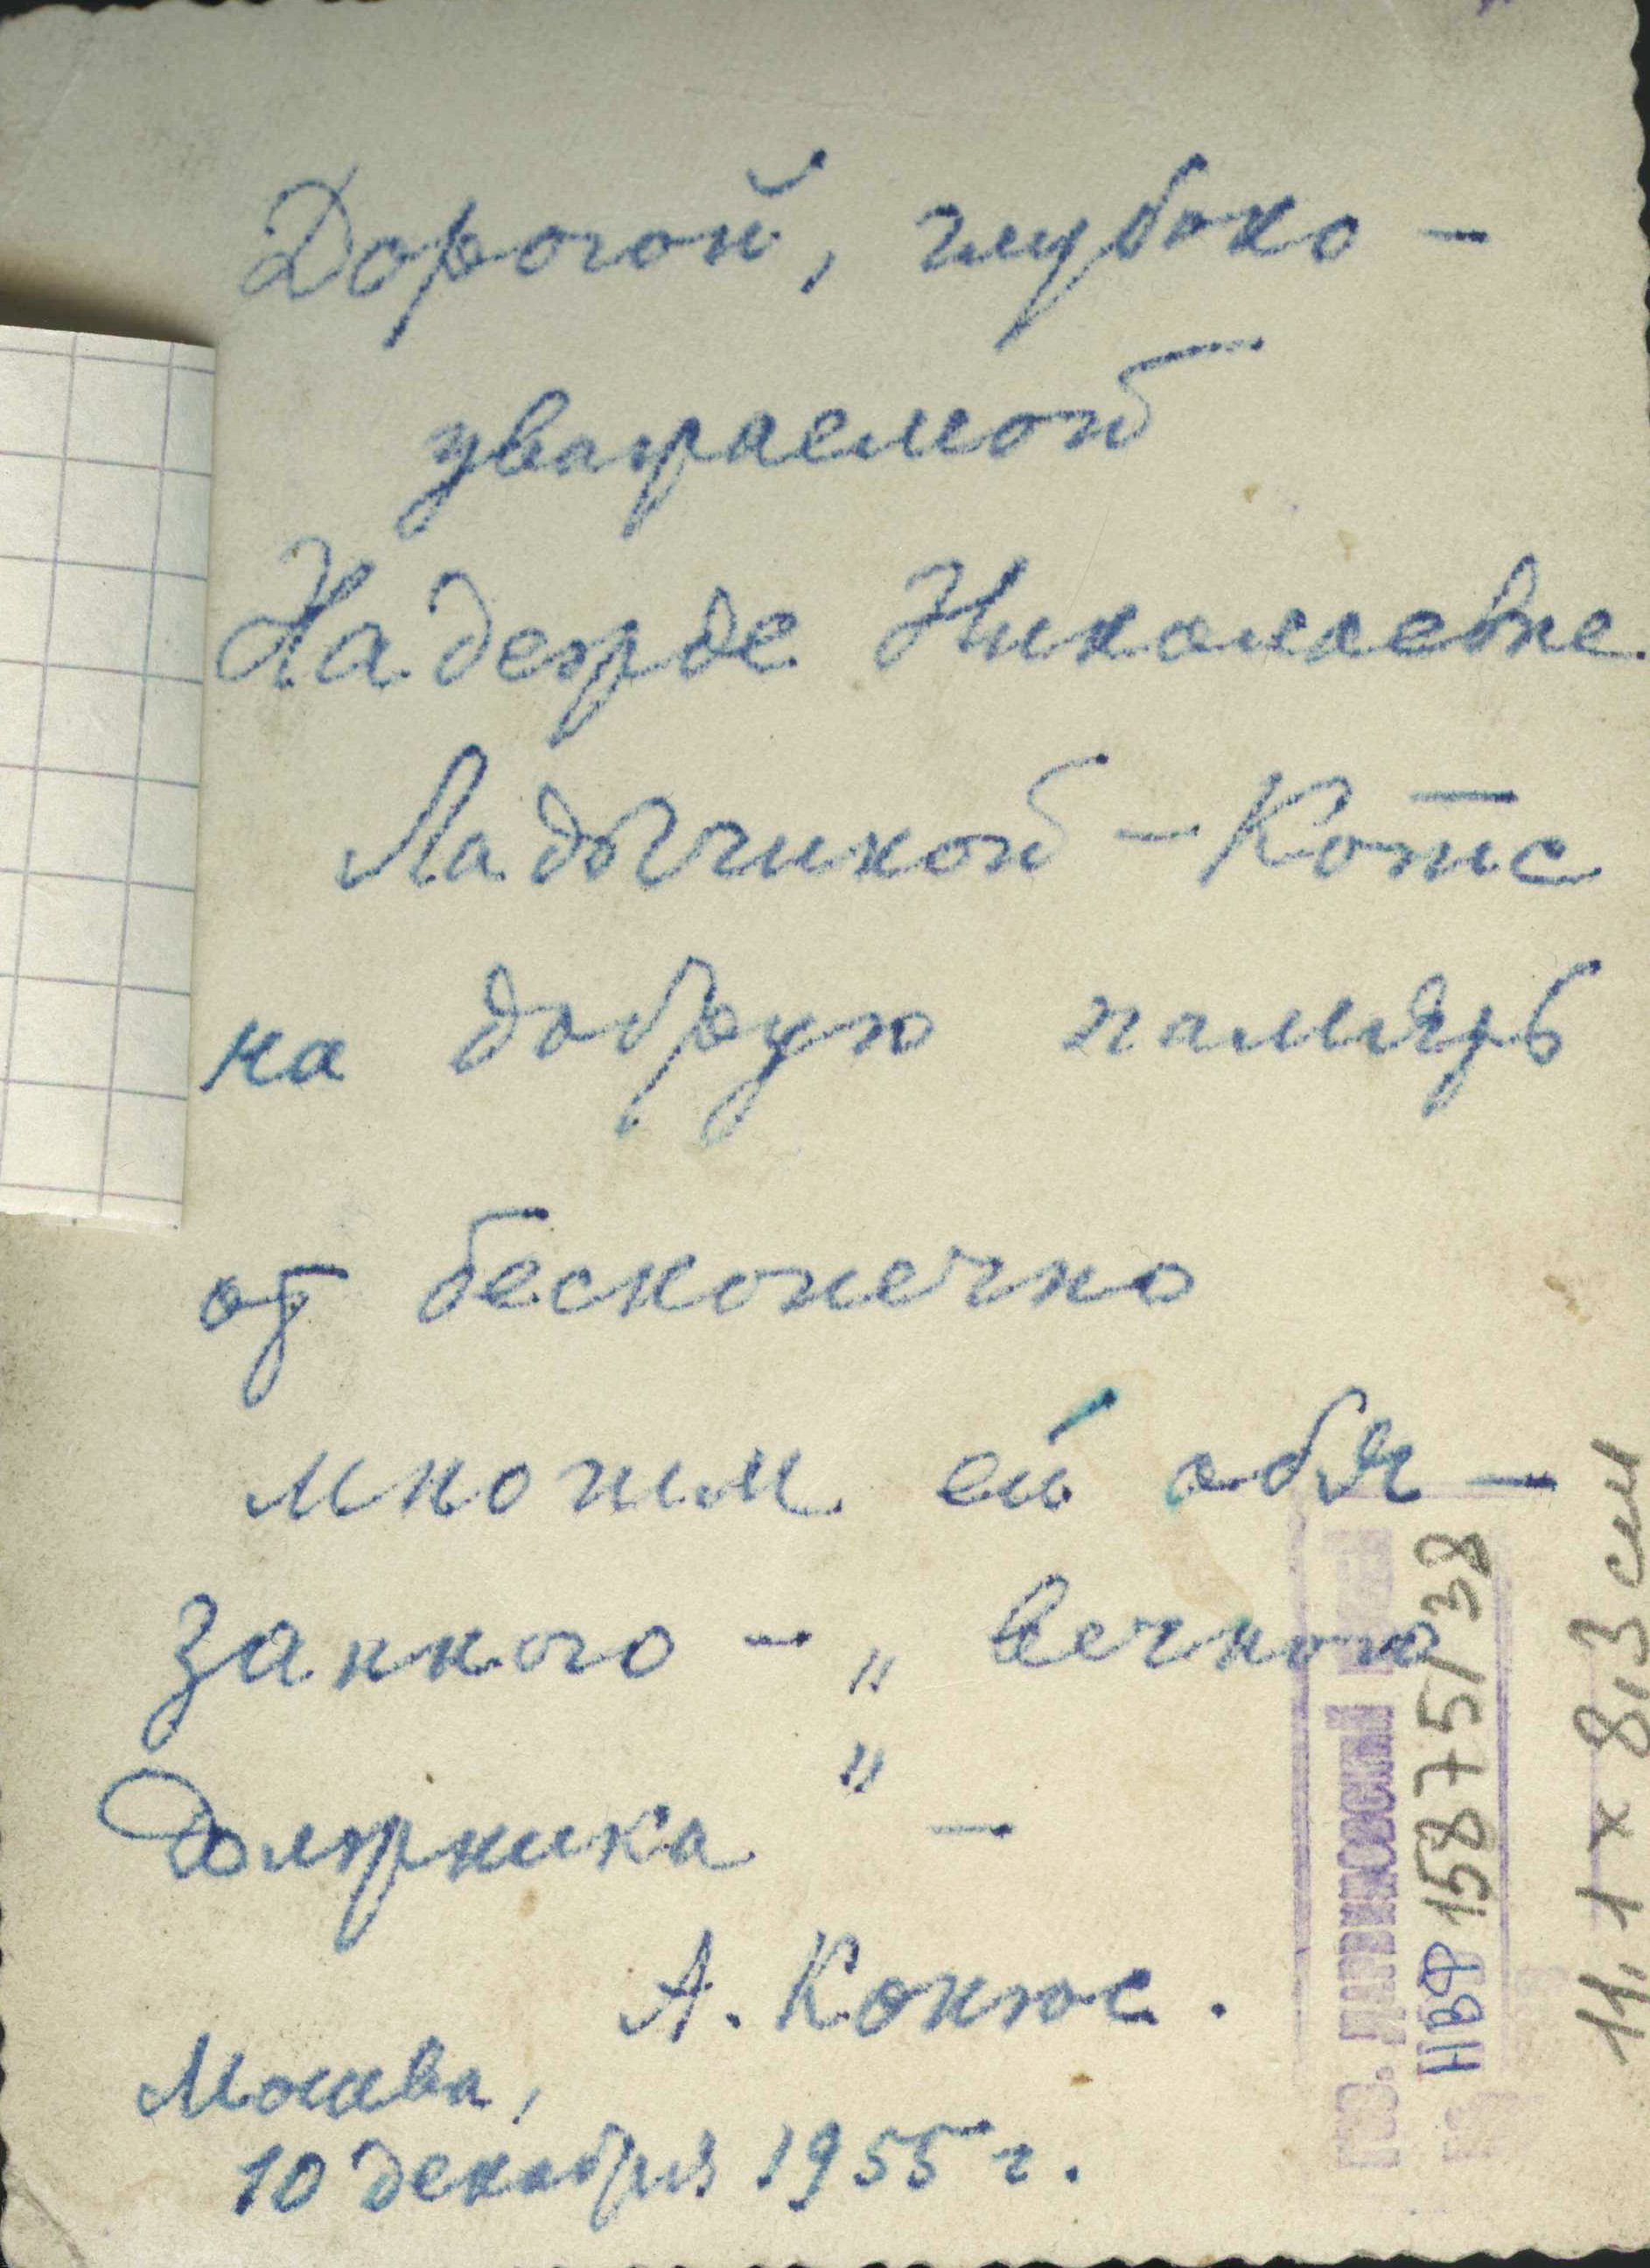 Дорогой, глубоко-
уважаемой
Надежде Николаевне
Ладычиной-Котс
на добрую память
от бесконечно
многим ей обя-
занного - „вечного
должника" -
А. Конюс.
Москва,
10 декабря 1955 г.
ГОС. ДАРВИНОВСКИЙ
НВФ 15875/38
11,1 x 8,3 см